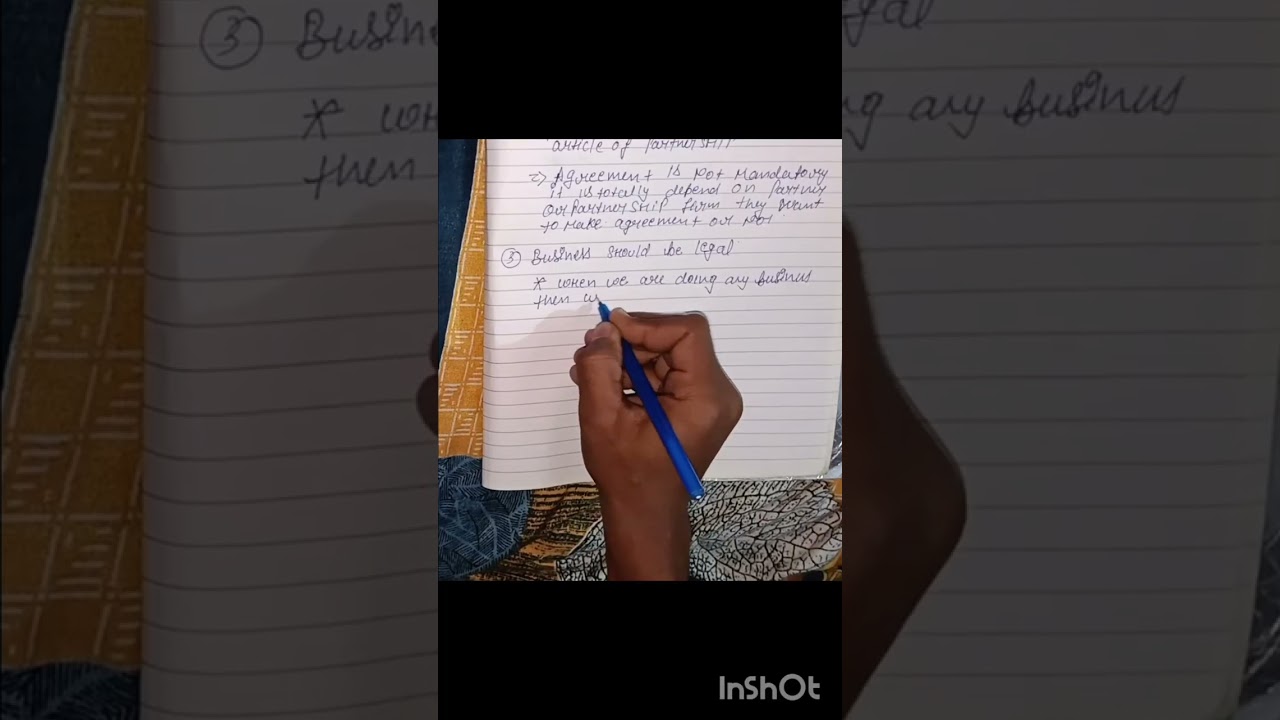 article of PartnerSHiP
2) Agreement is Not Mandatory
it is totally depend on Partner
Or PartnerSHiP firm they want
to Make agreement or Not
③ Business should be legal
* when we are doing any business
then w
InShOt